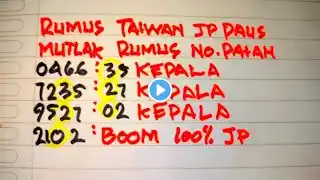 RUMUS TAIWAN JP PAUS
MUTLAK RUMUS NO.PATAH
0466 : 35 KEPALA
7235 : 27 KEPALA
9527 : 02 KEPALA
2102 : BOOM 100% JP